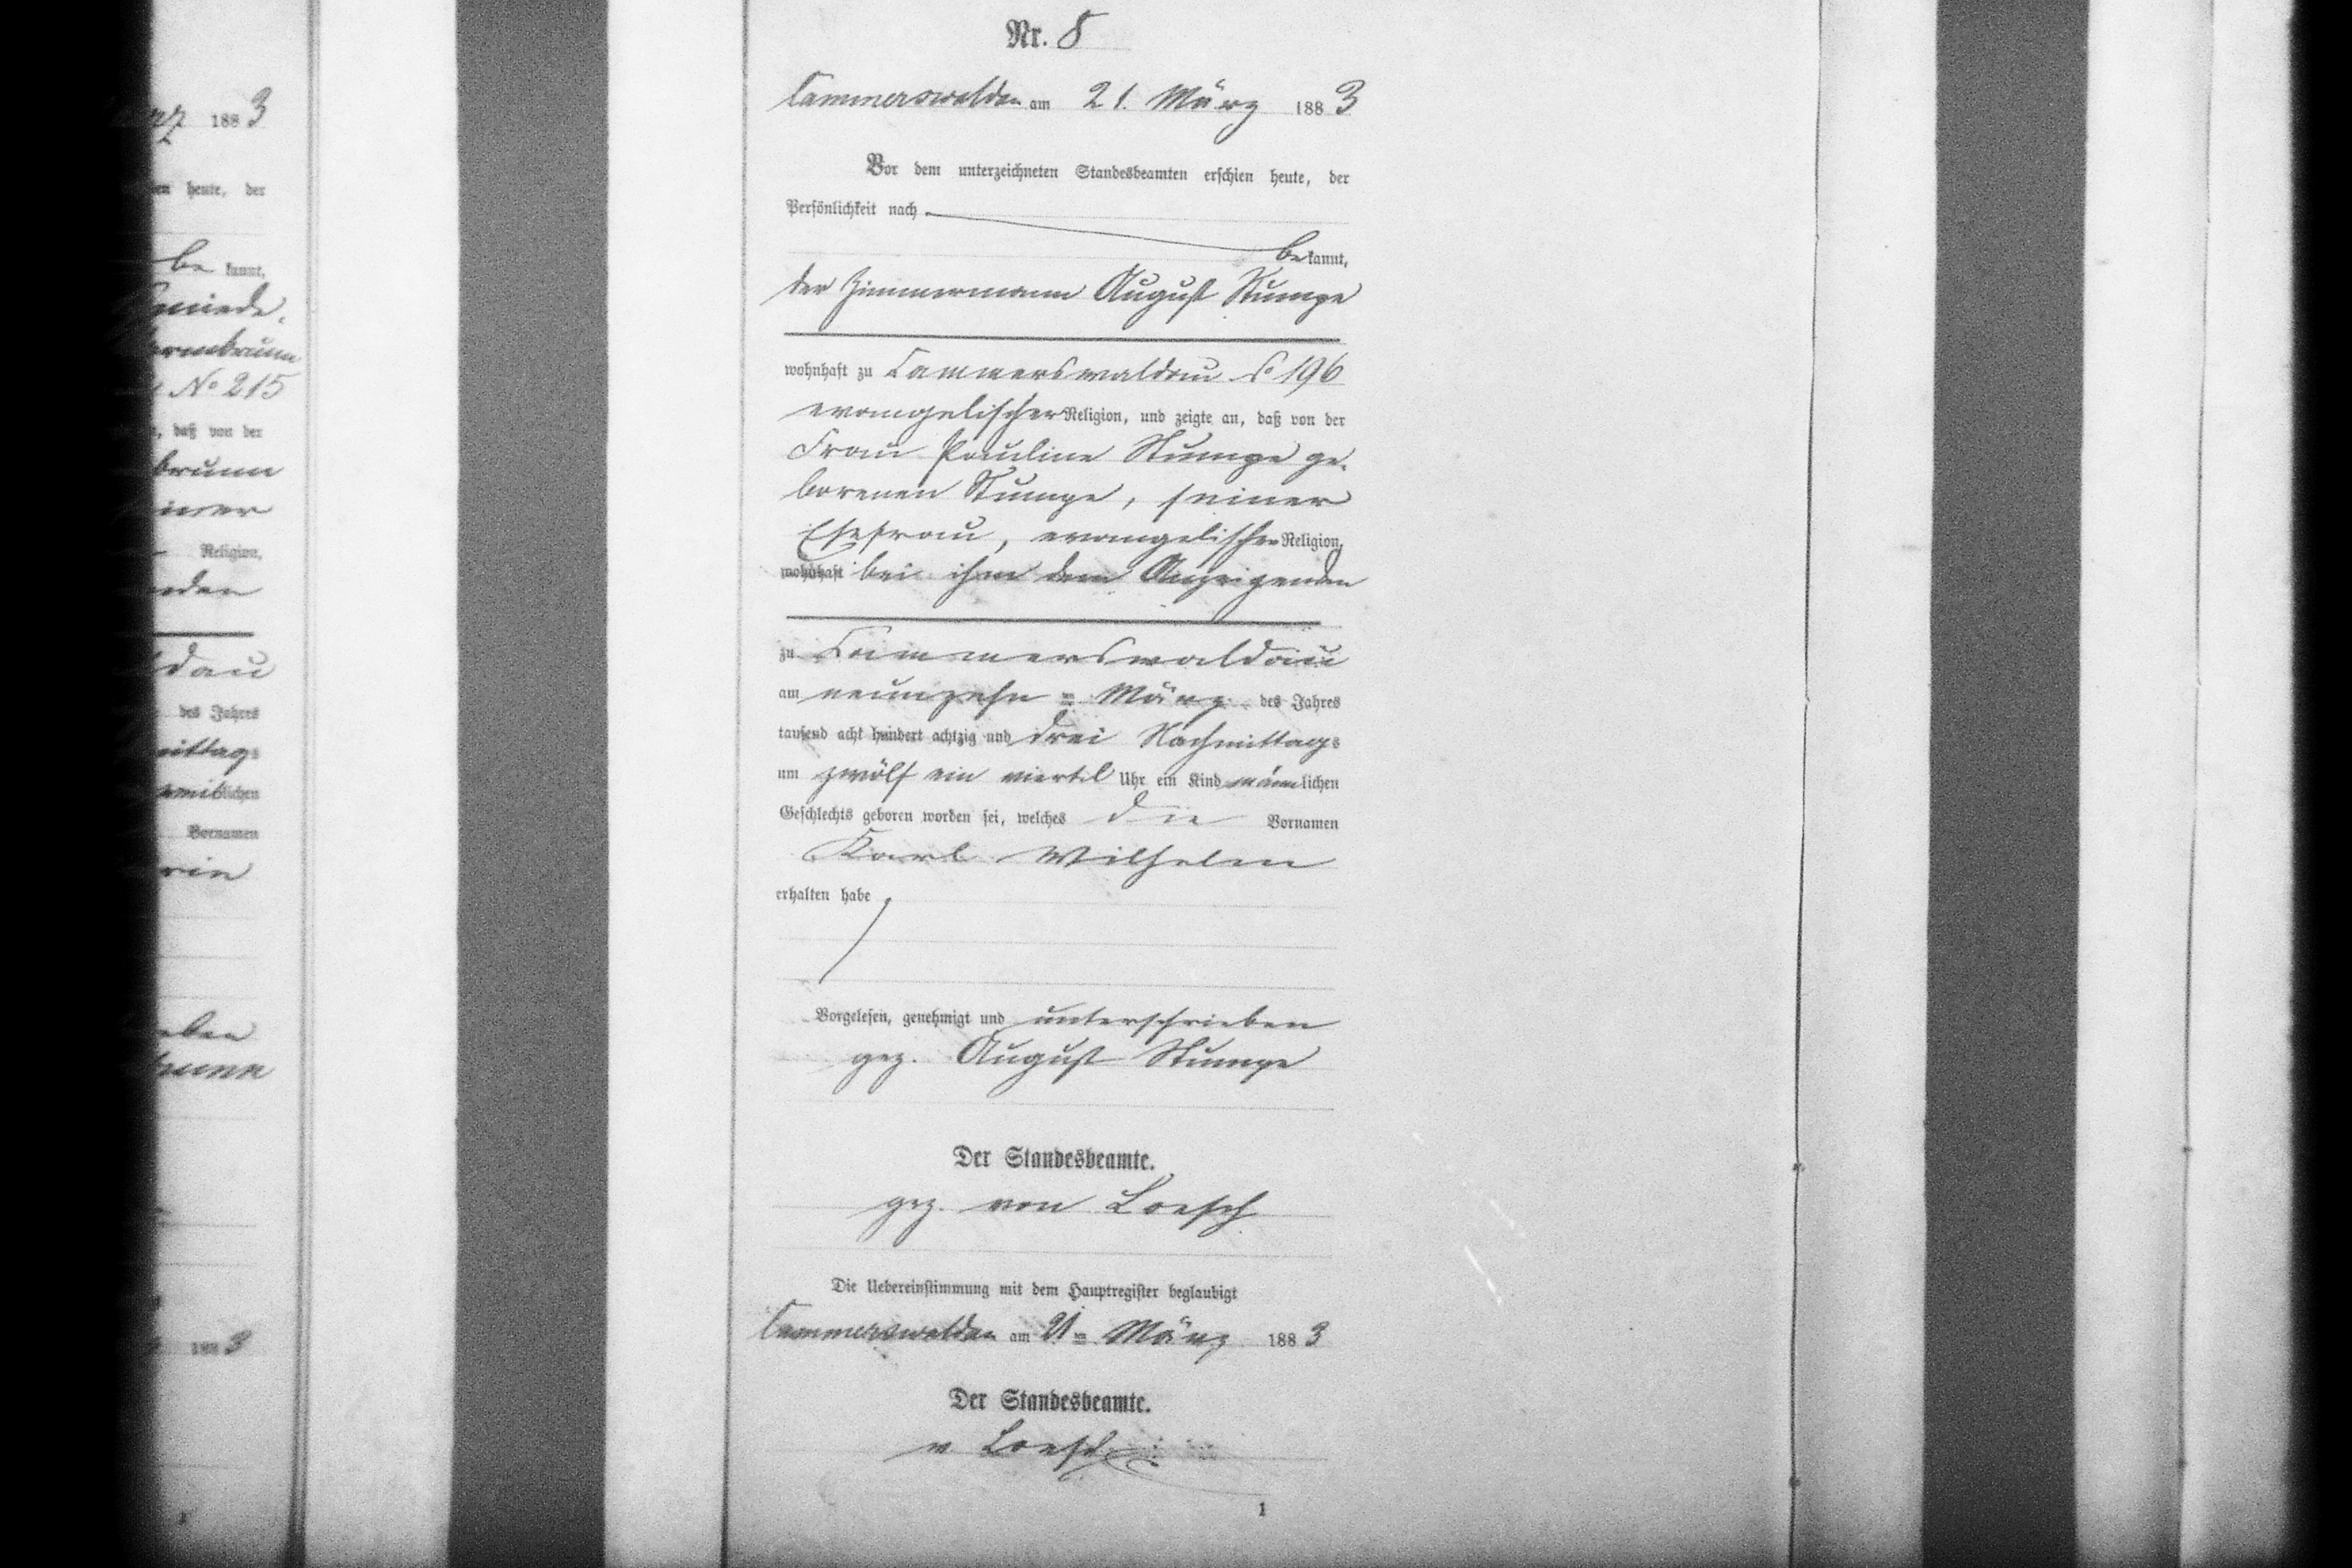 Nr. 8
Cammerswaldau am 21. März 1883
Vor dem unterzeichneten Standesbeamten erschien heute, der
Persönlichkeit nach
bekannt,
der Zimmermann August Stumpe
wohnhaft zu Cammerswaldau 196
evangelischer Religion, und zeigte an, daß von der
Frau Pauline Stumpe ge-
borenen Stumpe, seiner
Ehefrau, evangelischer Religion,
wohnhaft bei ihm dem Anzeigenden
zu Cammerswaldau
am neunzehn = März des Jahres
tausend acht hundert achtzig und drei Nachmittags
um zwölf ein viertel Uhr ein Kind männlichen
Geschlechts geboren worden sei, welches die Vornamen
Karl Wilhelm
erhalten habe
Vorgelesen, genehmigt und unterschrieben
gez. August Stumpe
Der Standesbeamte.
gez. von Loesch
Die Uebereinstimmung mit dem Hauptregister beglaubigt
Cammerswaldau am 21 = März 1883
Der Standesbeamte.
v Loesch
1
1883
heute, der
be kannt,
No 215
, daß von der
Religion,
des Jahres
lichen
Vornamen
1883